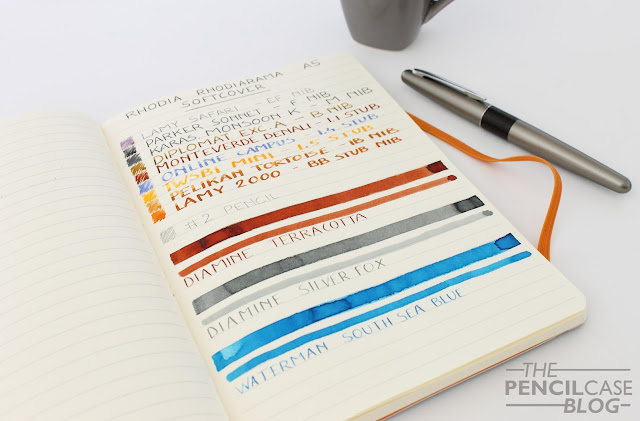 RHODIA RHODIARAMA A5
SOFTCOVER
LAMY SAFARI - EF NIB
PARKER SONNET - F NIB
KARAS MONSOON K - M NIB
DIPLOMAT EXC. A - B NIB
MONTEVERDE DENALI - 1.1 STUB
ONLINE CAMPUS - 1.4 STUB
TWSBI MINI - 1.5 STUB
PELIKAN TORTOISE - IB NIB
LAMY 2000 - BB STUB NIB
#2 PENCIL
DIAMINE TERRACOTTA
DIAMINE SILVER FOX
WATERMAN SOUTH SEA BLUE
THE
PENCILCASE
BLOG